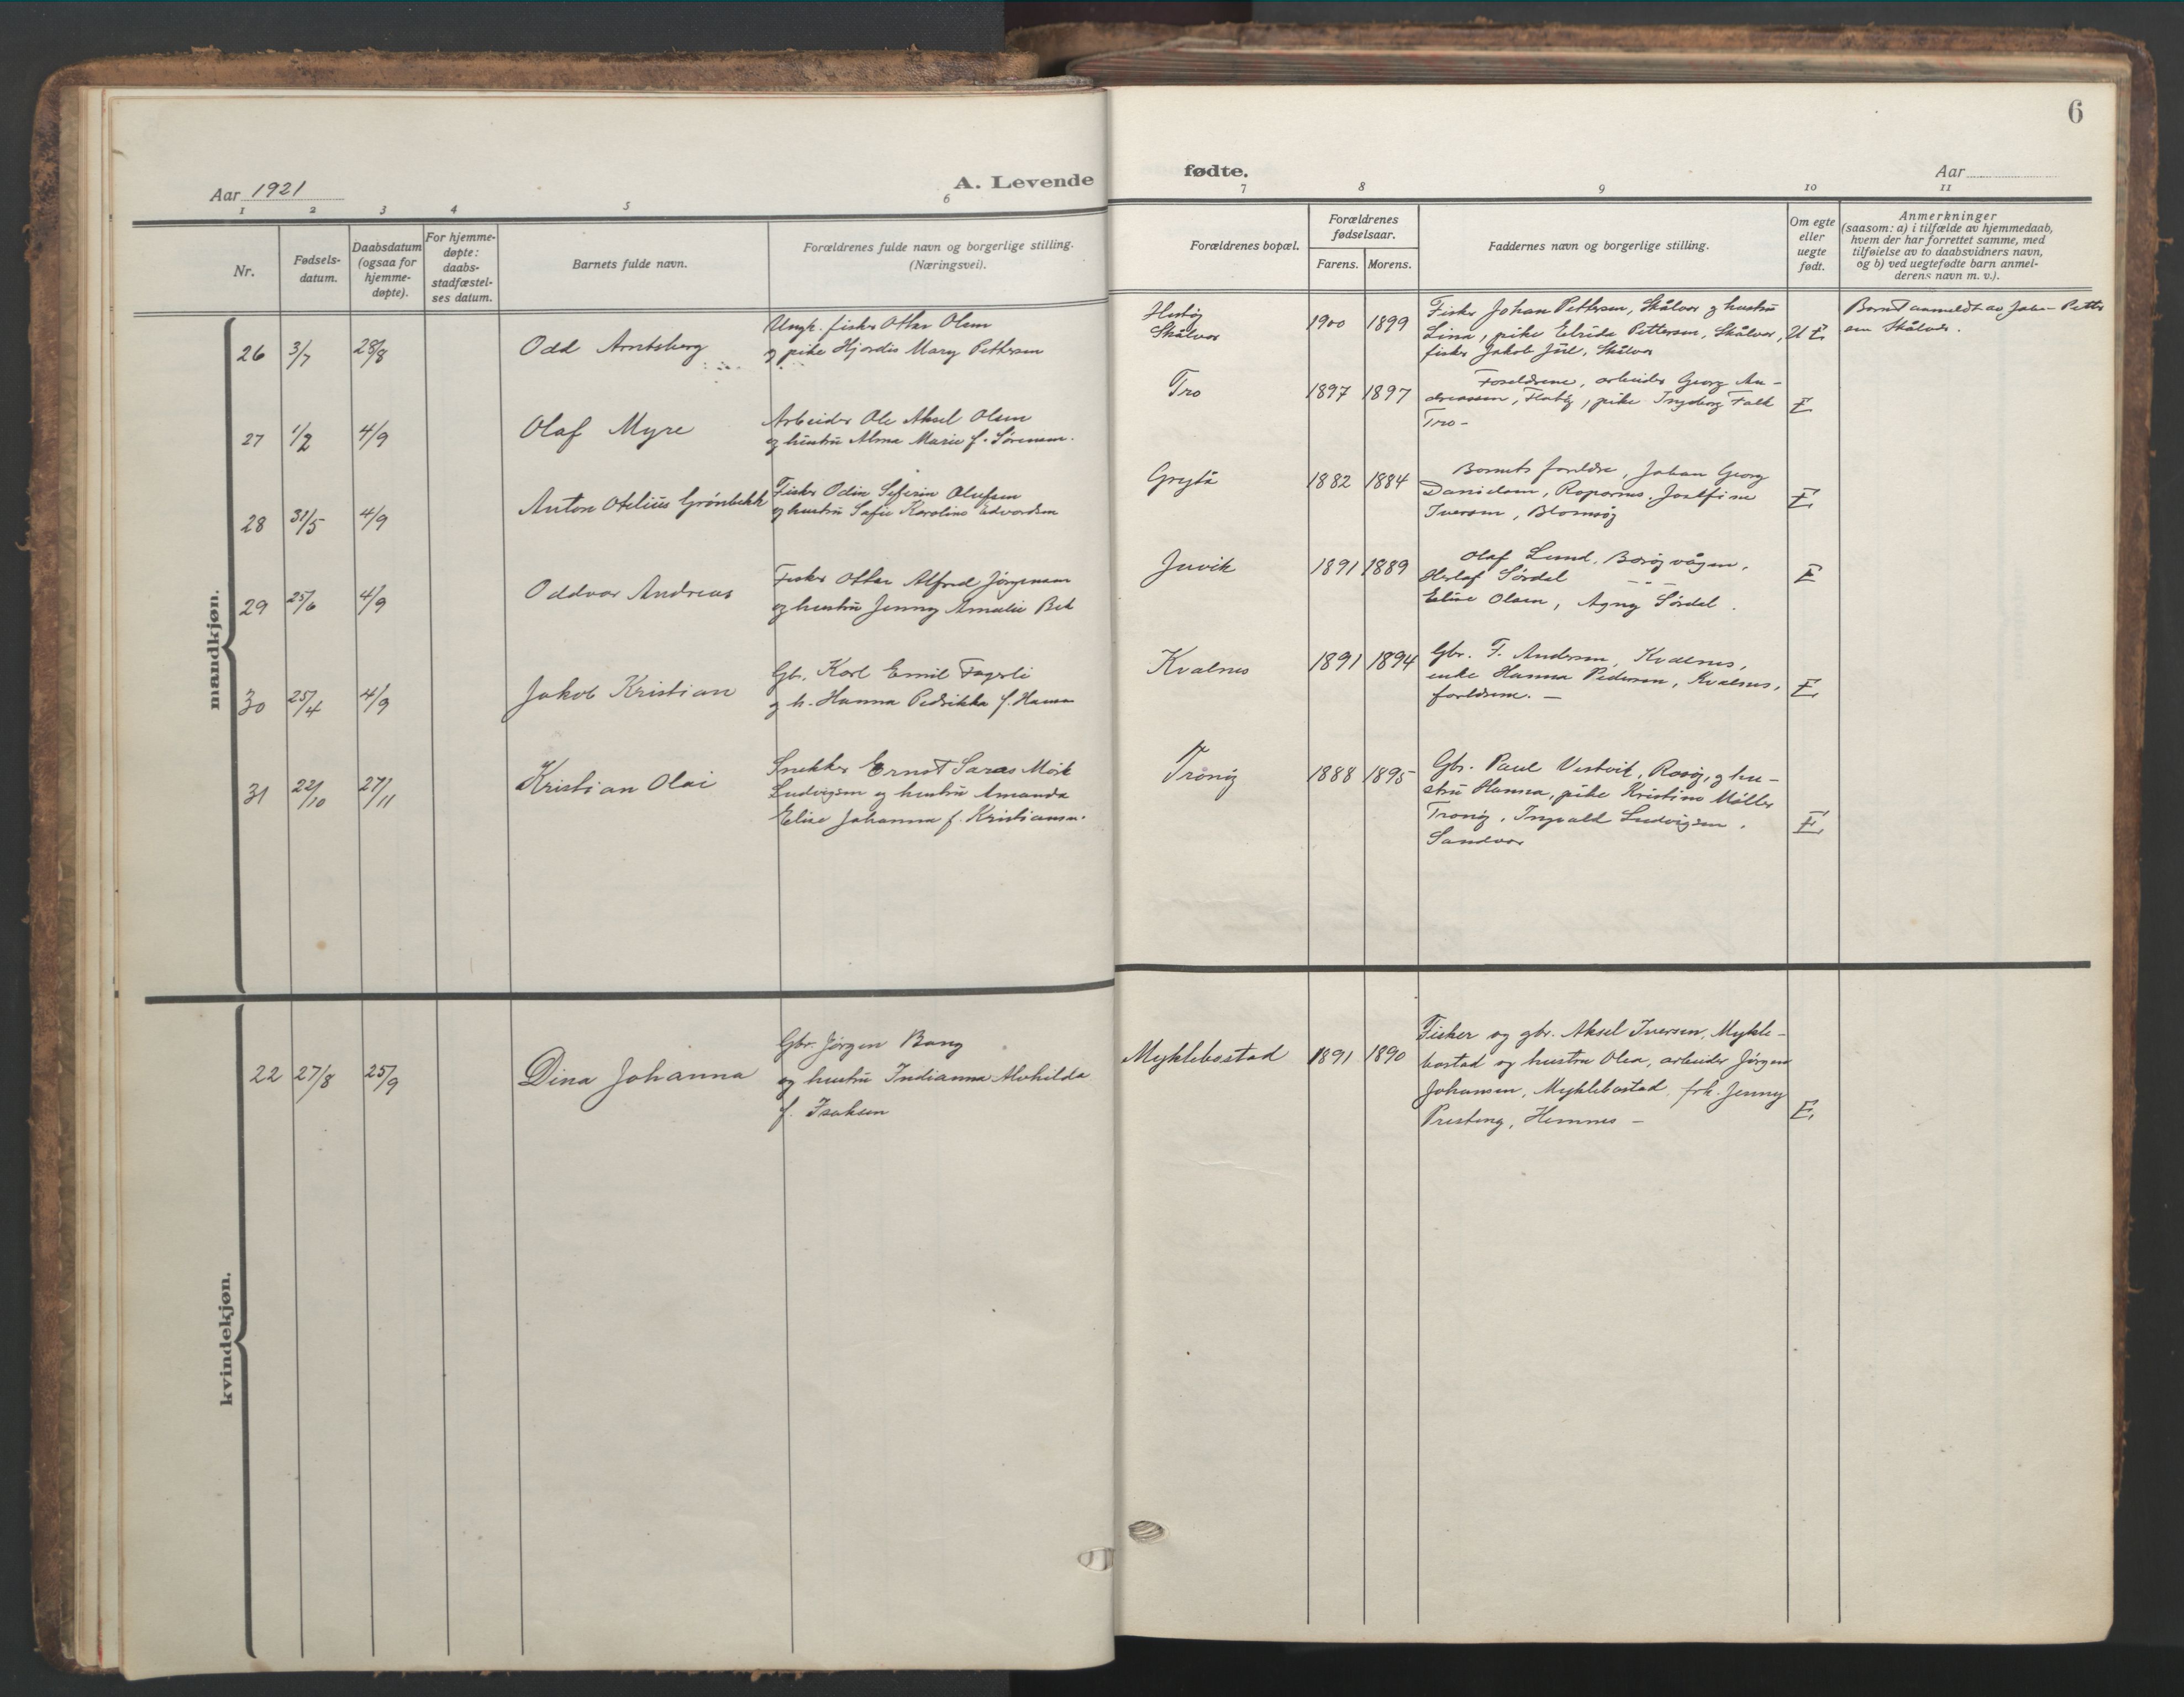 6
Aar 1921
A. Levende
fødte.
Aar
1 2 3 4 5 6 7 8 9 10 11
Nr.
Fødsels-
datum.
Daabsdatum
(ogsaa for
hjemme-
døpte).
For hjemme-
døpte:
daabs-
stadfæstel-
ses datum.
Barnets fulde navn.
Forældrenes fulde navn og borgerlige stilling.
(Næringsvei).
Forældrenes bopæl.
Forældrenes
fødselsaar.
Farens. Morens.
Faddernes navn og borgerlige stilling.
Om egte
eller
uegte
født.
Anmerkninger
(saasom: a) i tilfælde av hjemmedaab,
hvem der har forrettet samme, med
tilføielse av to daabsvidners navn,
og b) ved uegtefødte barn anmel-
derens navn m. v.).
mandkjøn.
26 3/7 28/8 Odd Arntsberg
Ungk. fisker Ottar Olsen
og pike Hjordis Mary Pettersen
Skålvær
1900 1899
Fisker Johan Pettersen, Skålvær og hustru
Lina, pike Elrida Pettersen, Skålvær,
fisker Jakob Juul, Skålvær
U E
Barnet anmeldt av Joha- Petter
sen Skålvær.
27 1/2 4/9 Olaf Myre
Arbeider Ole Aksel Olsen
og hustru Alma Marie f. Sørensen.
Tro
1897 1897
Foreldrene, arbeider Georg An-
dreassen, Flatøy, pike Ingeborg Falk
Tro -
E
28 31/5 4/9 Anton Otelius Grönbekk
Fisker Odin Seferin Olufsen
og hustru Sofie Karoline Edvardsen
Grytå
1882 1884
Barnets foreldre, Johan Georg
Danielsen, Roparnes. Josefine
Iversen, Blomsøy
E
29 25/6 4/9 Oddvar Andreas
Fisker Ottar Alfred Jörgensen
og hustru Jenny Amalie Bek
Juvik
1891 1889
Olaf Lund, Barøyvågen,
Herlof Sördal - " -
Elise Olsen, Agny Sördal.
E
30 25/4 4/9 Jakob Kristian
Gbr. Karl Emil Fagerli
og h. Hanna Pedrikka f. Hansen
Kvalnes
1891 1894
Gbr. F. Andersen, Kvalnes,
enke Hanna Pedersen, Kvalnes,
foreldrene. -
E
31 22/10 27/11 Kristian Olai
Snekker Ernst Saras Mörk
Ludvigsen og hustru Amanda
Elise Johanna f. Kristiansen.
Tronöy
1888 1895
Gbr. Paul Vestvik, Rosøy, og hu-
stru Hanna, pike Kristine Möller
Tronöy, Ingvald Ludvigsen,
Sandvær
E
kvindekjøn.
22 27/8 25/9 Dina Johanna
Gbr. Jörgen Bang
og hustru Indianna Alvhilda
f. Isaksen
Myklebostad
1891 1890
Fisker og gbr. Aksel Iversen, Mykle-
bostad og hustru Olea, arbeider Jörgen
Johansen, Myklebostad, frk. Jenny
Presteng, Hemnes -
E.